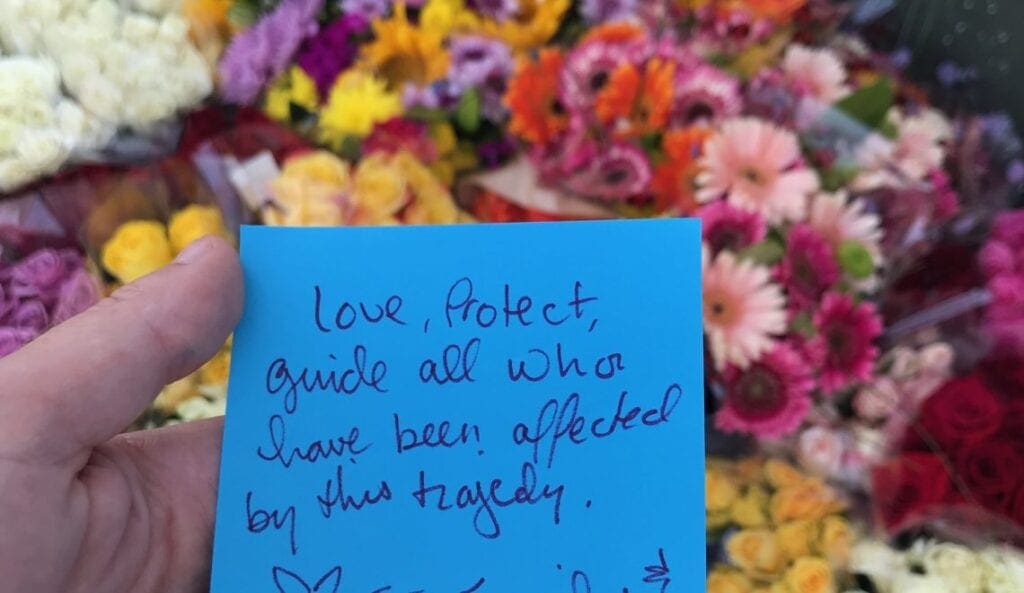 Love, Protect,
guide all who
have been affected
by this tragedy.